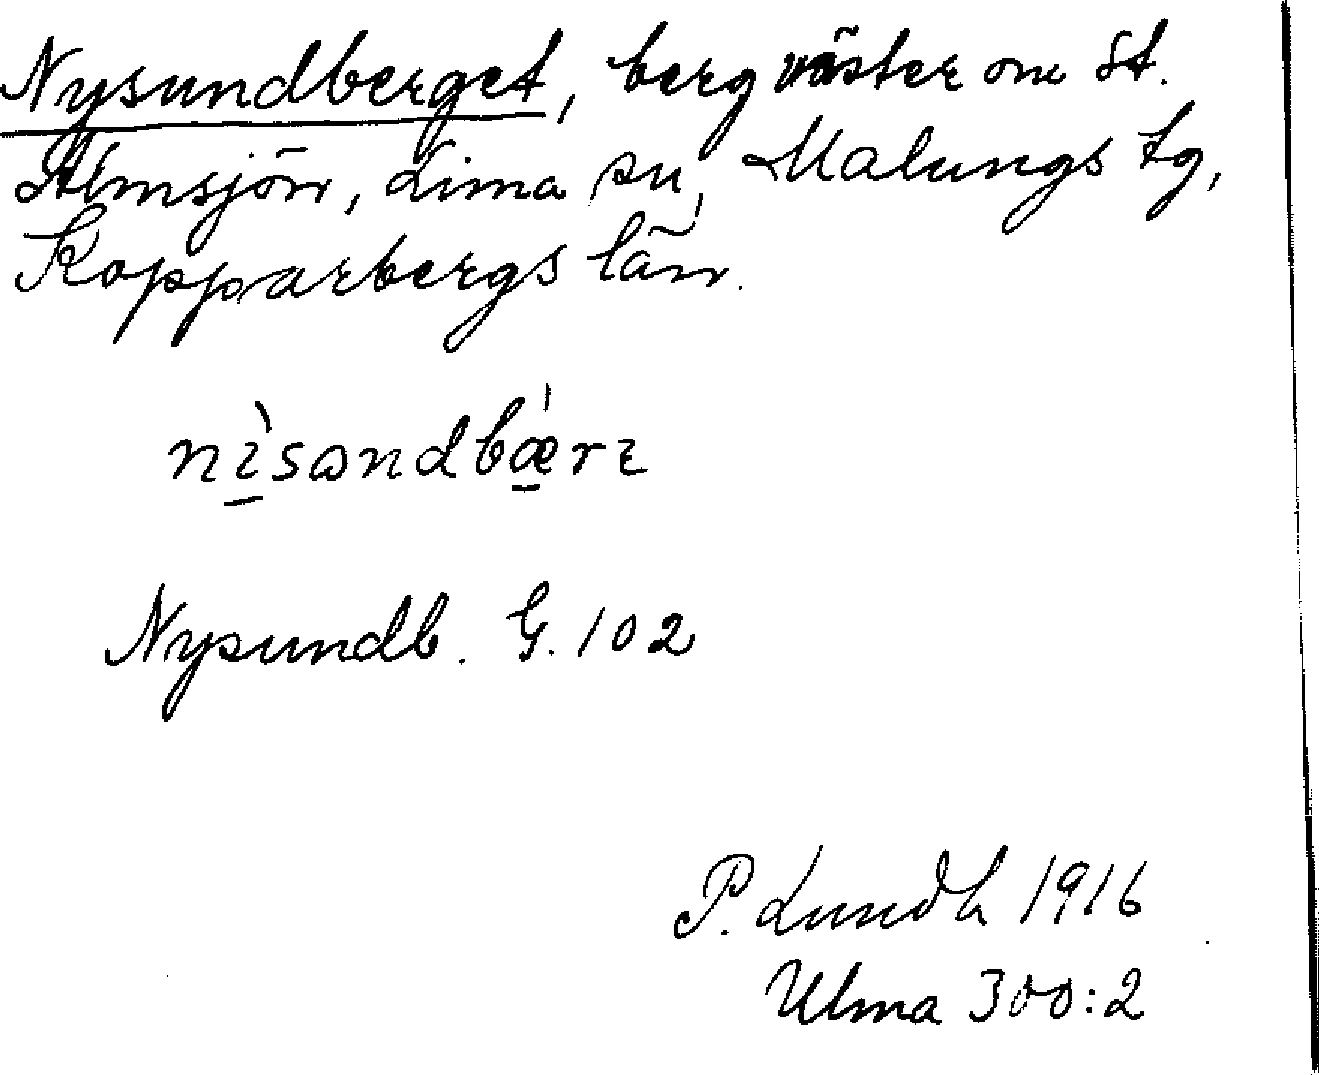 Nysundberget, berg väster om St.
Almsjön, Lima sn, Malungs tg,
Kopparbergs län.
nìsωndbæ̀rɩ
Nysundb. G. 102
P. Lundh 1916
Ulma 300:2